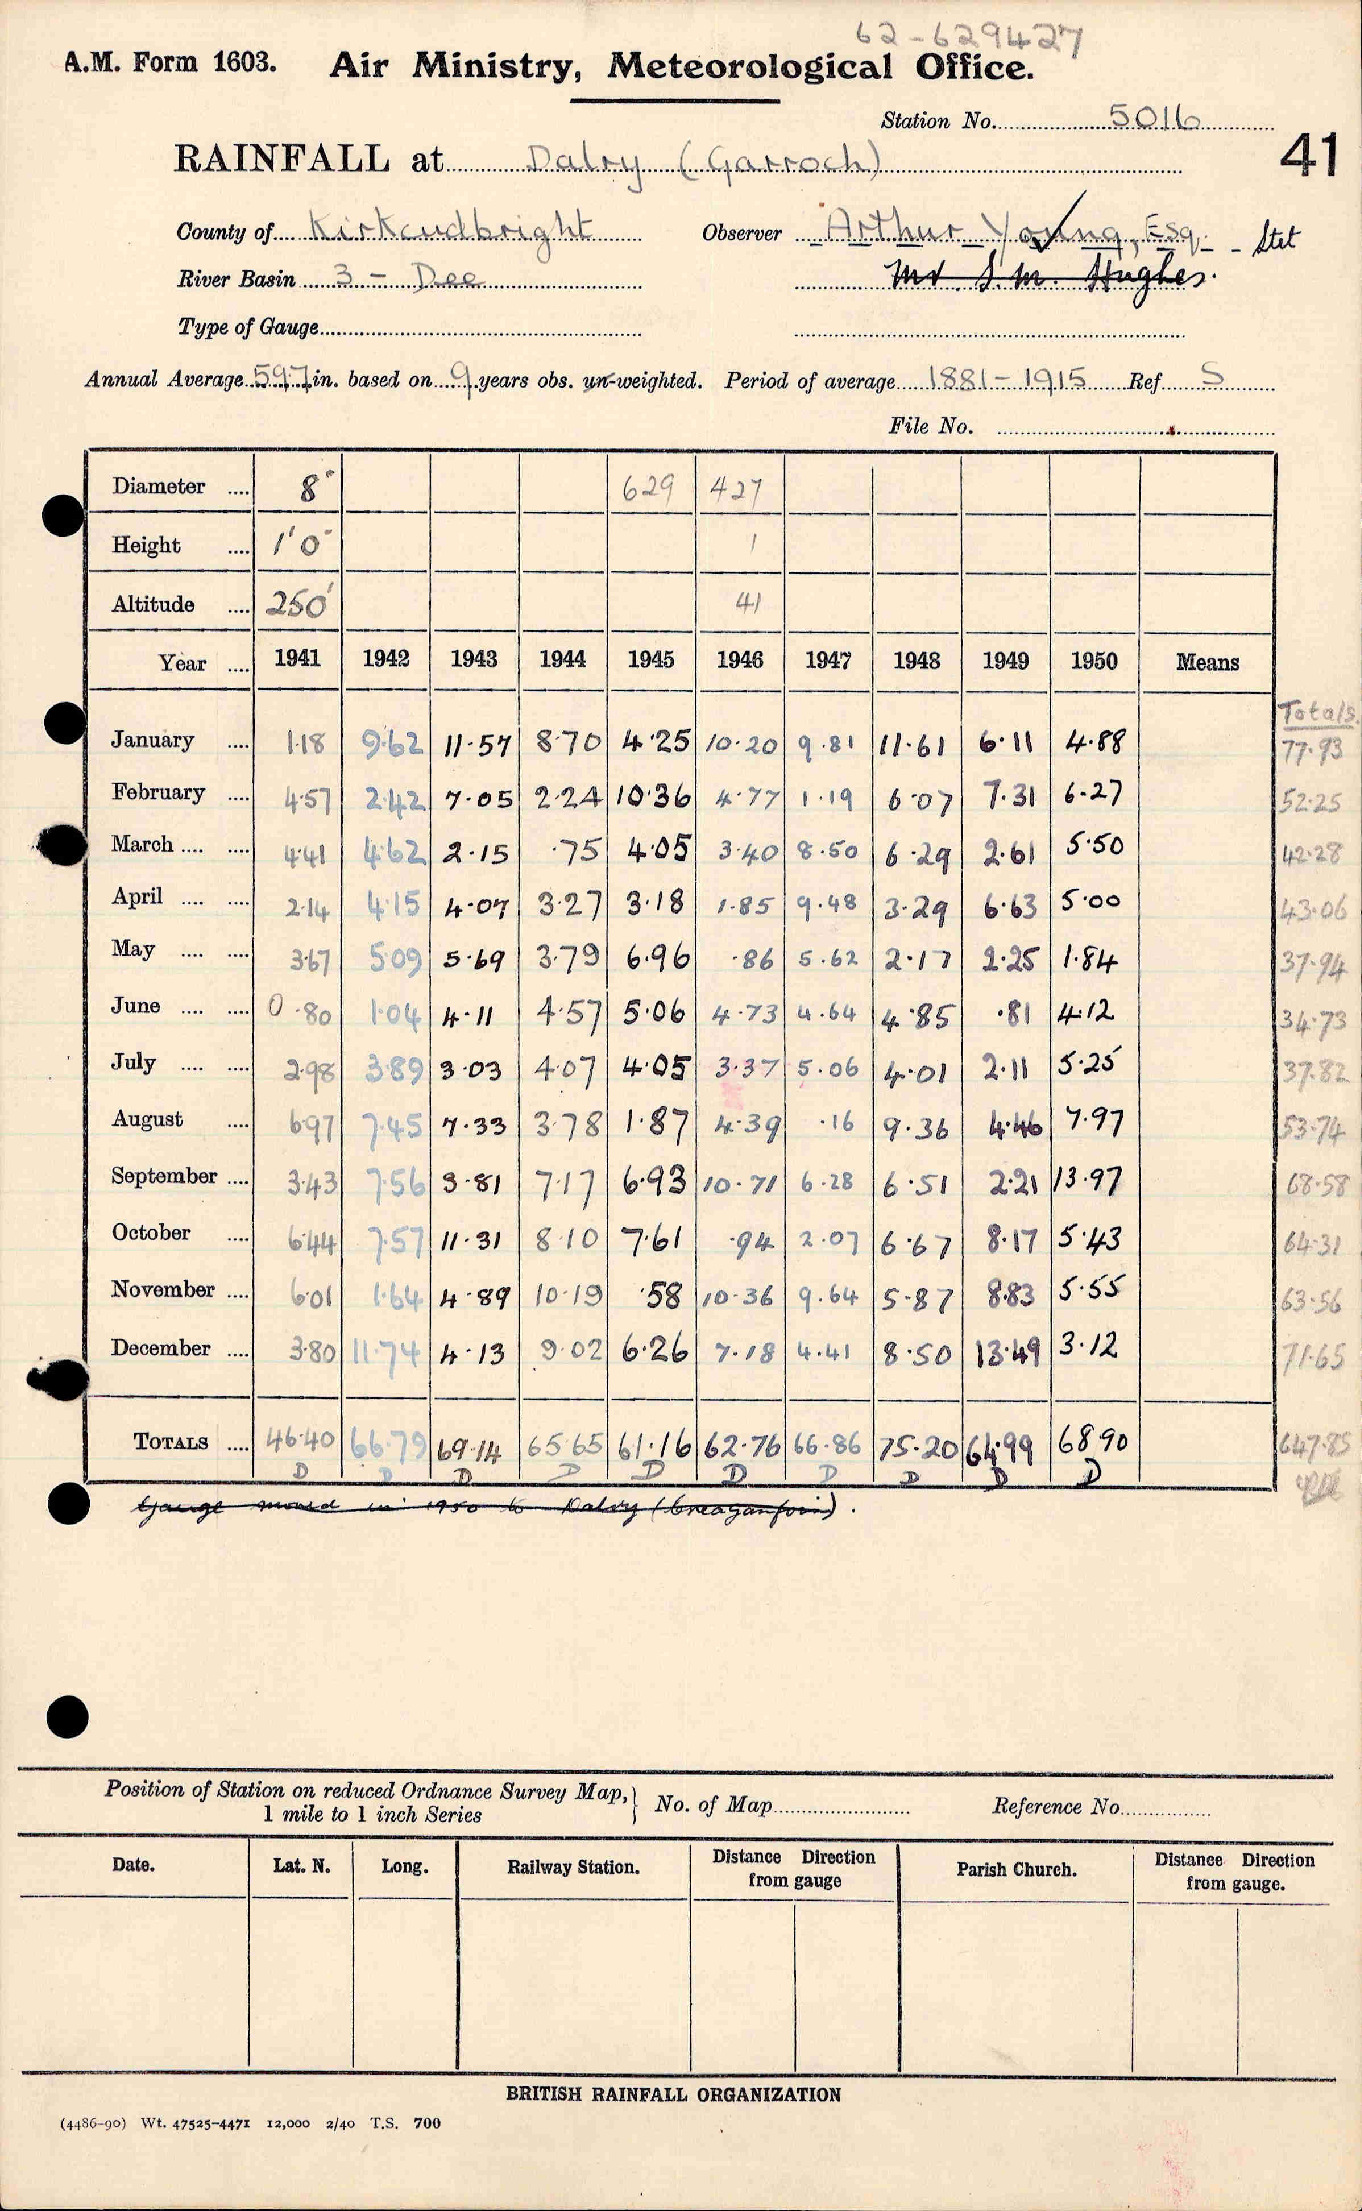 62-629427
A.M. Form 1603. Air Ministry, Meteorological Office.
Station No. 5016
41
RAINFALL at Dalry (Garroch)
County of Kirkcudbright Observer Arthur Young, Esq. - Stet
River Basin 3 - Dee Mr. S.M. Hughes.
Type of Gauge
Annual Average 59.7 in. based on 9 years obs. un-weighted. Period of average 1881-1915 Ref S
File No.
Diameter .... 8" 629 427
Height .... 1'0" 1
Altitude .... 250' 41
Year .... 1941 1942 1943 1944 1945 1946 1947 1948 1949 1950 Means
Totals.
January .... 1.18 9.62 11.57 8.70 4.25 10.20 9.81 11.61 6.11 4.88 77.93
February .... 4.57 2.42 7.05 2.24 10.36 4.77 1.19 6.07 7.31 6.27 52.25
March .... .... 4.41 4.62 2.15 .75 4.05 3.40 8.50 6.29 2.61 5.50 42.28
April .... .... 2.14 4.15 4.07 3.27 3.18 1.85 9.48 3.29 6.63 5.00 43.06
May .... .... 3.67 5.09 5.69 3.79 6.96 .86 5.62 2.17 2.25 1.84 37.94
June .... .... 0.80 1.04 4.11 4.57 5.06 4.73 4.64 4.85 .81 4.12 34.73
July .... .... 2.98 3.89 3.03 4.07 4.05 3.37 5.06 4.01 2.11 5.25 37.82
August .... 6.97 7.45 7.33 3.78 1.87 4.39 .16 9.36 4.46 7.97 53.74
September .... 3.43 7.56 3.81 7.17 6.93 10.71 6.28 6.51 2.21 13.97 68.58
October .... 6.44 7.57 11.31 8.10 7.61 .94 2.07 6.67 8.17 5.43 64.31
November .... 6.01 1.64 4.89 10.19 .58 10.36 9.64 5.87 8.83 5.55 63.56
December .... 3.80 11.74 4.13 9.02 6.26 7.18 4.41 8.50 13.49 3.12 71.65
TOTALS .... 46.40 66.79 69.14 65.65 61.16 62.76 66.86 75.20 64.99 68.90 647.85
D D D D D D D D D D
Gauge moved in 1950 to Dalry (Creaganfoin).
Position of Station on reduced Ordnance Survey Map, } No. of Map Reference No
1 mile to 1 inch Series
Date. Lat. N. Long. Railway Station. Distance Direction from gauge Parish Church. Distance Direction from gauge.
BRITISH RAINFALL ORGANIZATION
(4486-90) Wt. 47525-4471 12,000 2/40 T.S. 700